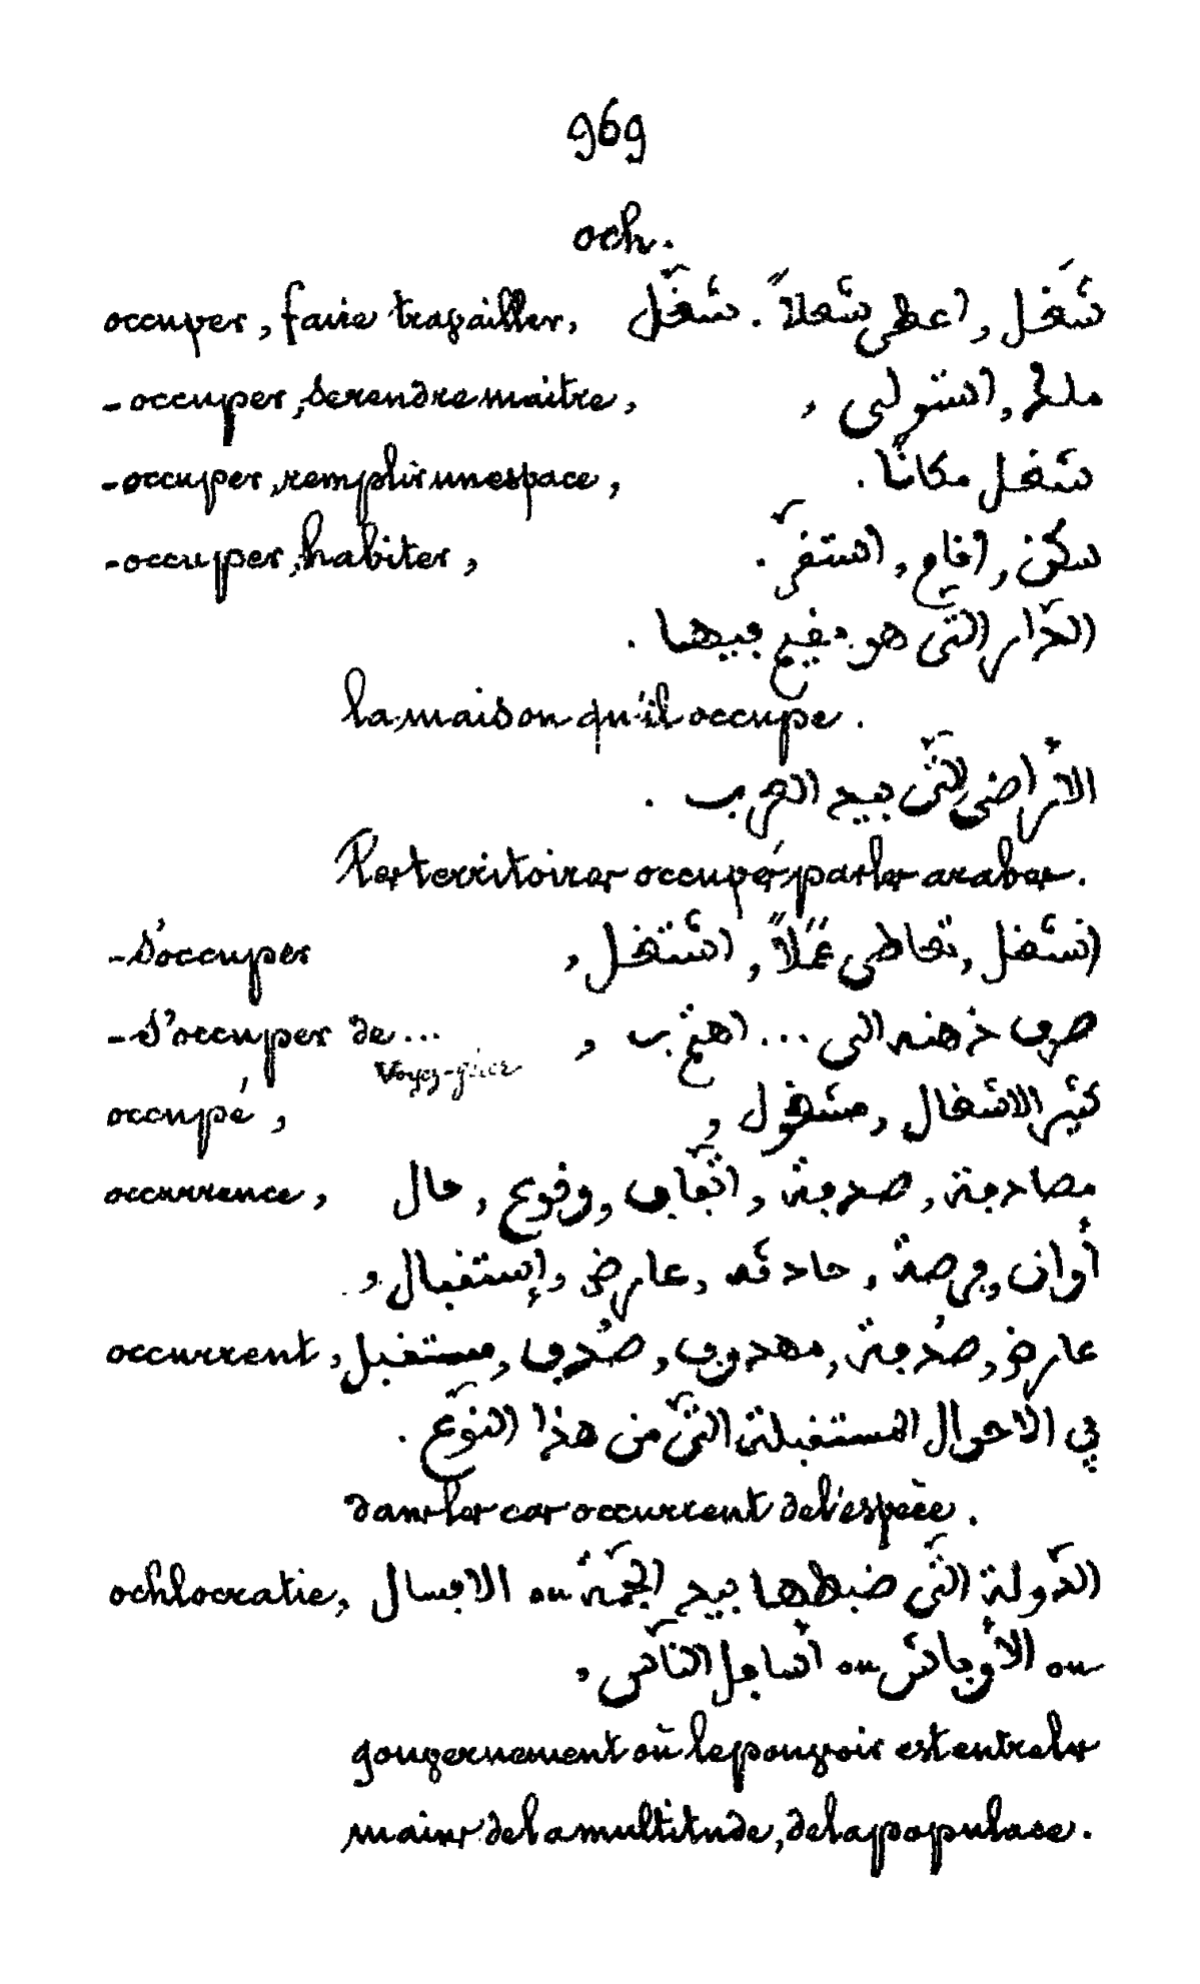 969
och.
occuper, faire travailler, شَغَل, اعطى شغلاً. شغَّل
- occuper, se rendre maitre, ملك, استولى,
- occuper, remplir un espace, شغل مكانًا.
- occuper, habiter, سكن, اقام, استقرّ.
الدّار الّتى هو مقيم فيها.
la maison qu'il occupe.
الأراضى الّتى بيد العرب.
Les territoires occupés par les arabes.
- s'occuper انشغل, تعاطى عَمَلاً, اشتغل,
- s'occuper de... صرف ذهنه الى ... اهتمّ ب,
Voyez-
occupé, كثير الاشغال, مشغول,
occurrence, مصادفة, صدفة, اتّفاق, وقوع, حال
أوان, فرصة, حادثه, عارض, إستقبال,
occurrent, عارض, صُدفة, مهدوف, صُدف, مستقبل,
في الاحوال المستقبلة الّتى من هذا النّوع.
dans les cas occurrent de l'espèce.
ochlocratie, الدّولة الّتى ضبطها بيد الجمّة ou الافسال
ou الأوباش ou أسافل النّاس,
gouvernement où le pouvoir est entre les
mains de la multitude, de la populace.